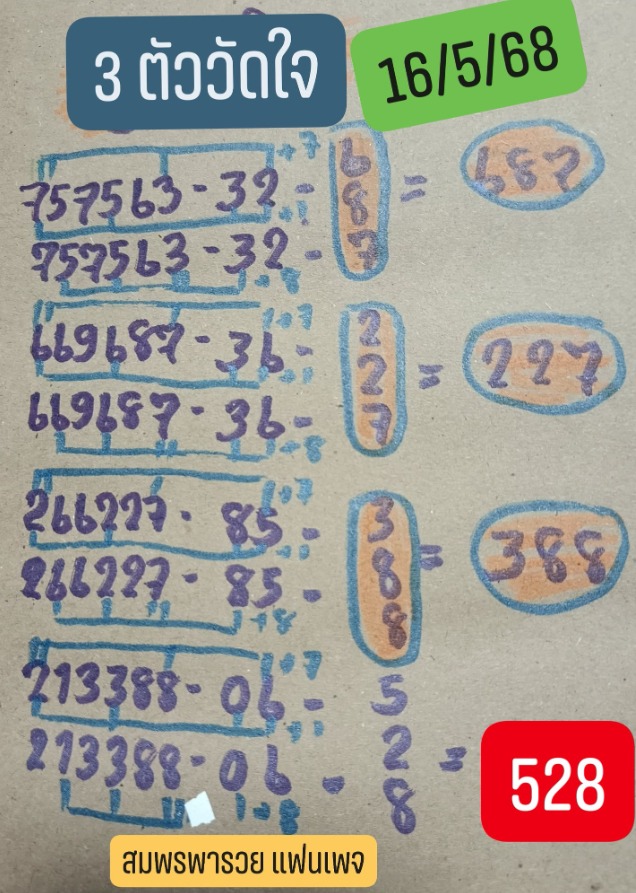 3 ตัววัดใจ
16/5/68
+7
757563-32- 6 = 687
+1 8
757563-32- 7
+8
+7
669687-36- 2 = 227
+1 2
669687-36- 7
+8
+7
266227-85- 3 = 388
+1 8
266227-85- 8
+8
+7
213388-06- 5
+1 2 = 528
213388-06- 8
+8
สมพรพารวย แฟนเพจ